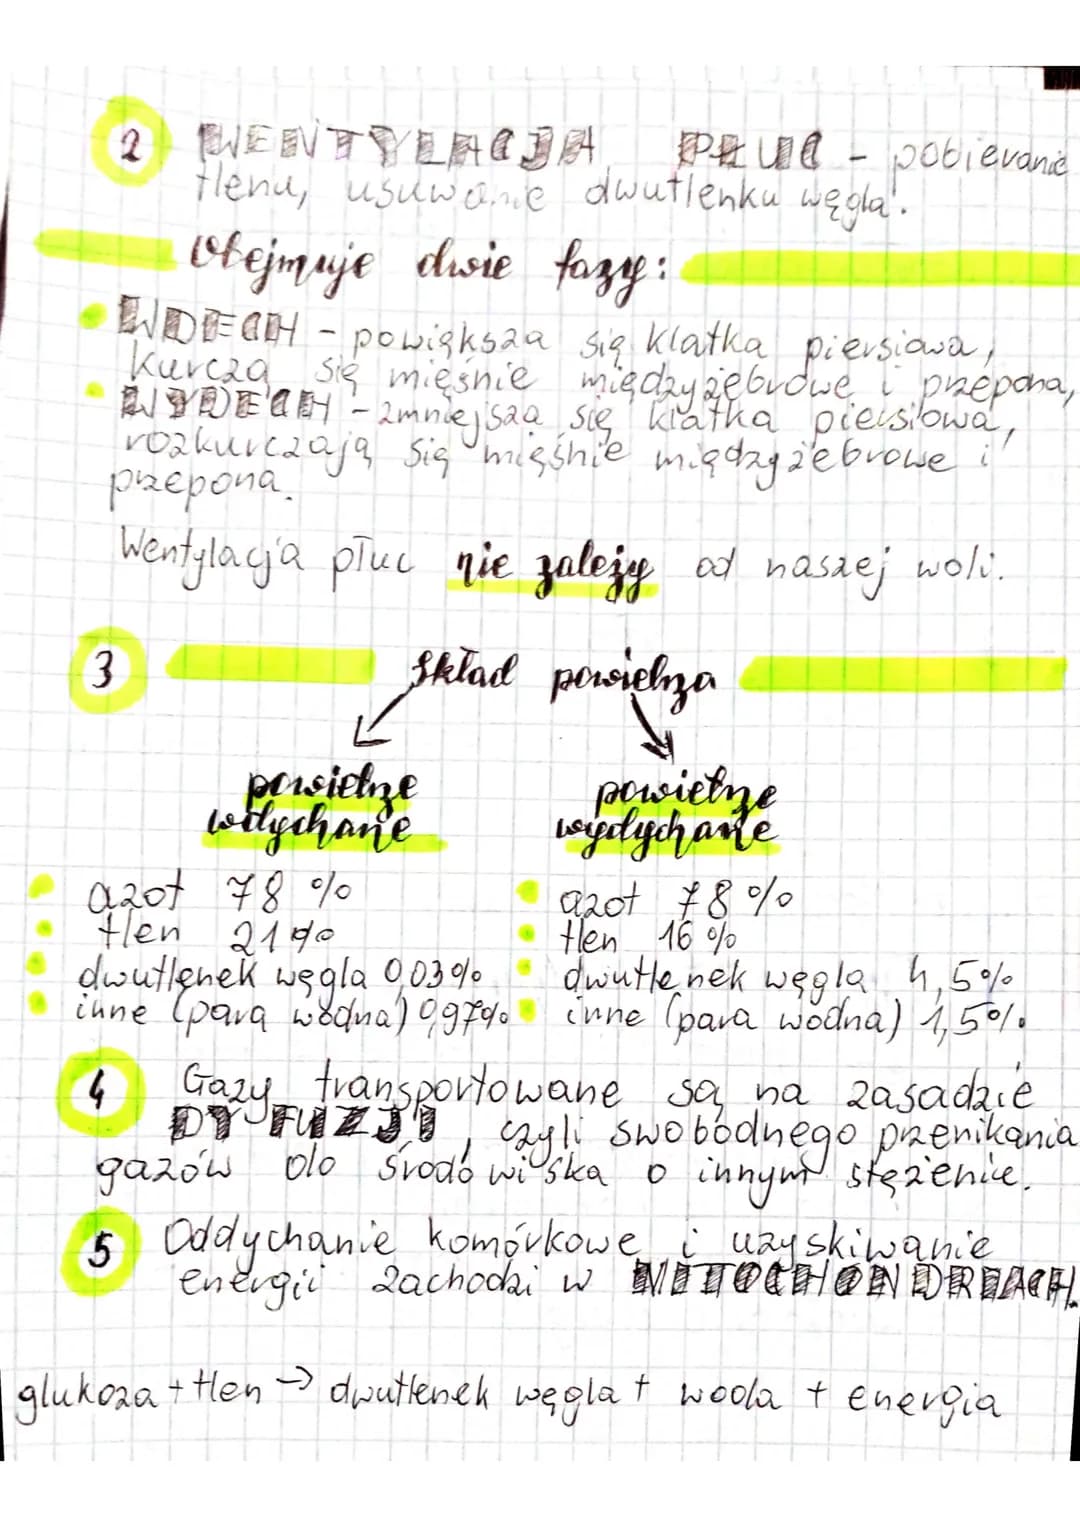 2 WENTYLACJA PŁUC - pobieranie
tlenu, usuwanie dwutlenku węgla.
Obejmuje dwie fazy:
WDECH - powiększa się klatka piersiowa,
kurczą się mięśnie międzyżebrowe i przepona,
WYDECH - zmniejsza się klatka piersiowa,
rozkurczają się mięśnie międzyżebrowe i
przepona.
Wentylacja płuc nie zależy od naszej woli.
3 Skład powietrza
powietrze
wdychane
azot 78 %
tlen 21%
dwutlenek węgla 0,03%
inne (para wodna) 0,97%
powietrze
wydychane
azot 78 %
tlen 16 %
dwutlenek węgla 4,5%
inne (para wodna) 1,5%
4 Gazy transportowane są na zasadzie
DYFUZJI, czyli swobodnego przenikania
gazów do środowiska o innym stężenie.
5 Oddychanie komórkowe i uzyskiwanie
energii zachodzi w MITOCHONDRIACH.
glukoza + tlen → dwutlenek węgla + woda + energia